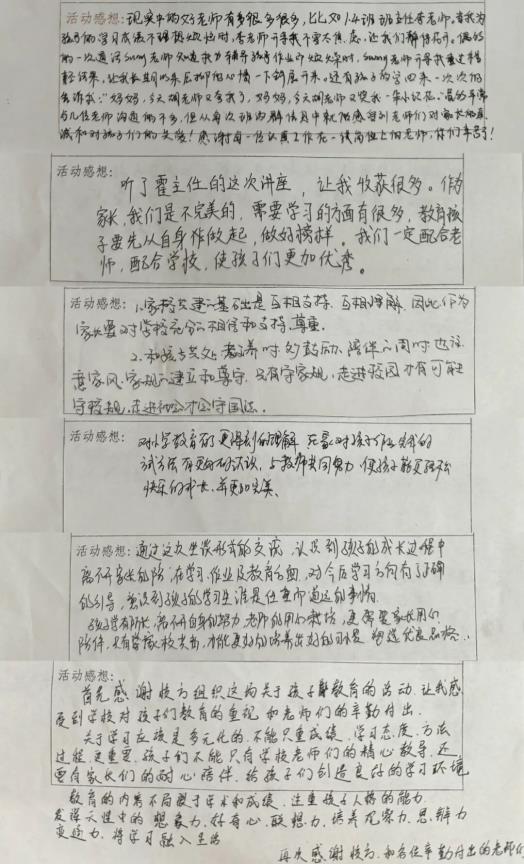 活动感想：现实中的好老师有多很多很多，比如1.4班班主任李老师。当我为
孩子的学习成绩不理想烦恼时，李老师开导我不要太焦虑，还我们静待花开。偶然
的一次通话sunny老师知道我为辅导孩子作业而烦躁时，sunny老师开导我重过程
轻结果，让我长期以来压抑的心情一下舒展开来。还有孩子的学回来一次次的
告诉我："妈妈，今天胡老师又夸我了，妈妈，今天胡老师又奖我一朵小红花。"虽然平常
与几位老师沟通的不多，但从每次班内群信息中就能感受到老师们对家长的真
诚和对孩子们的关爱！感谢每一位认真工作在一线岗位上的老师，你们辛苦了！
活动感想：
听了霍主任的这次讲座，让我收获很多。作为
家长，我们是不完美的，需要学习的方面有很多，教育孩
子要先从自身作做起，做好榜样。我们一定配合老
师，配合学校，使孩子们更加优秀。
活动感想：1.家校共建的基础是互相支持、互相理解，因此作为
家长要对学校充分的相信和支持、尊重。
2.和孩子共处、教养时的鼓励、陪伴的同时也注
意家风、家规的建立和遵守，只有守家规，走进校园才有可能
守校规，走进社会才会守国法。
活动感想：
对小学教育有了更深刻的理解
试方法有更好的认识，与教师共同努力，使孩子能更
快乐的成长，并更加完美。
活动感想：通过这次坐谈形式的交流，认识到孩子的成长过程中
离不开家长的陪 在学习、作业及教育方面，对今后学习方向有了明确
的引导，意识到孩子的学习生涯是任重而道远的事情。
孩子学有所长，离不开自身的努力，老师的用心栽培，更需要家长用心
陪伴，只有学家校共击，才能更好的培养出好的习惯，塑造优良品格。
活动感想：
首先感谢校方组织这场关于孩子教育的活动，让我感
受到学校对孩子们教育的重视和老师们的辛勤付出。
关于学习应该是多元化的，不能只重成绩，学习态度、方法
过程更重要，孩子们不能只有学校老师们的精心教导，还
要有家长们的耐心陪伴，给孩子们创造良好的学习环境
教育的内容不局限于学术和成绩，注重孩子人格的能力
发挥天性中的想象力、好奇心、联想力，培养观察力、思辩力
变通力，将学习融入生活
再次感谢校方和各位辛勤付出的老师们